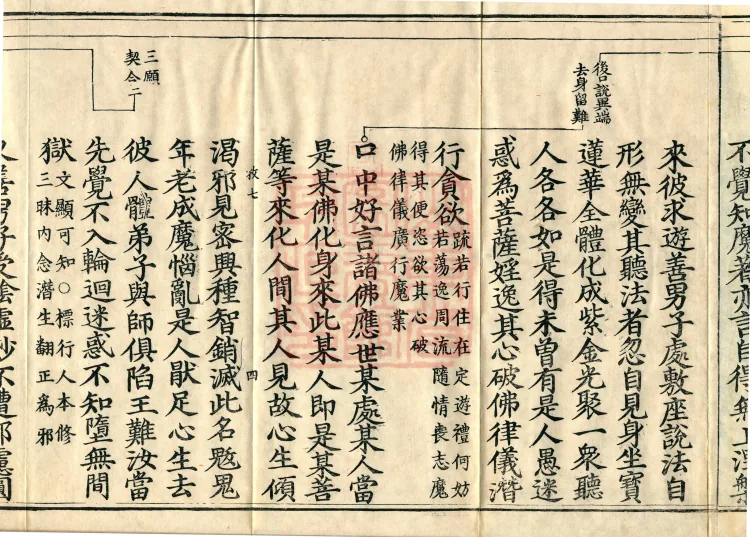 不覺知魔著亦言自得無上涅槃
來彼求遊善男子處敷座說法自
形無變其聽法者忽自見身坐寶
蓮華全體化成紫金光聚一衆聽
人各各如是得未曾有是人愚迷
惑爲菩薩婬逸其心破佛律儀潛
行貪欲
疏若行住在定遊禮何妨
若蕩逸周流隨情喪志魔
得其便恣欲其心破
佛律儀廣行魔業
後口說異端
去身留難
口中好言諸佛應世某處某人當
是某佛化身來此某人即是某善
薩等來化人間其人見故心生傾
渴邪見密興種智銷滅此名魃鬼
年老成魔惱亂是人猒足心生去
彼人體弟子與師俱陷王難汝當
先覺不入輪迴迷惑不知墮無間
獄
文顯可知○標行人本修
三昧內念潛生翻正爲邪
三願
契合二
又善男子受陰虛妙不遭邪慮圓
救七
四